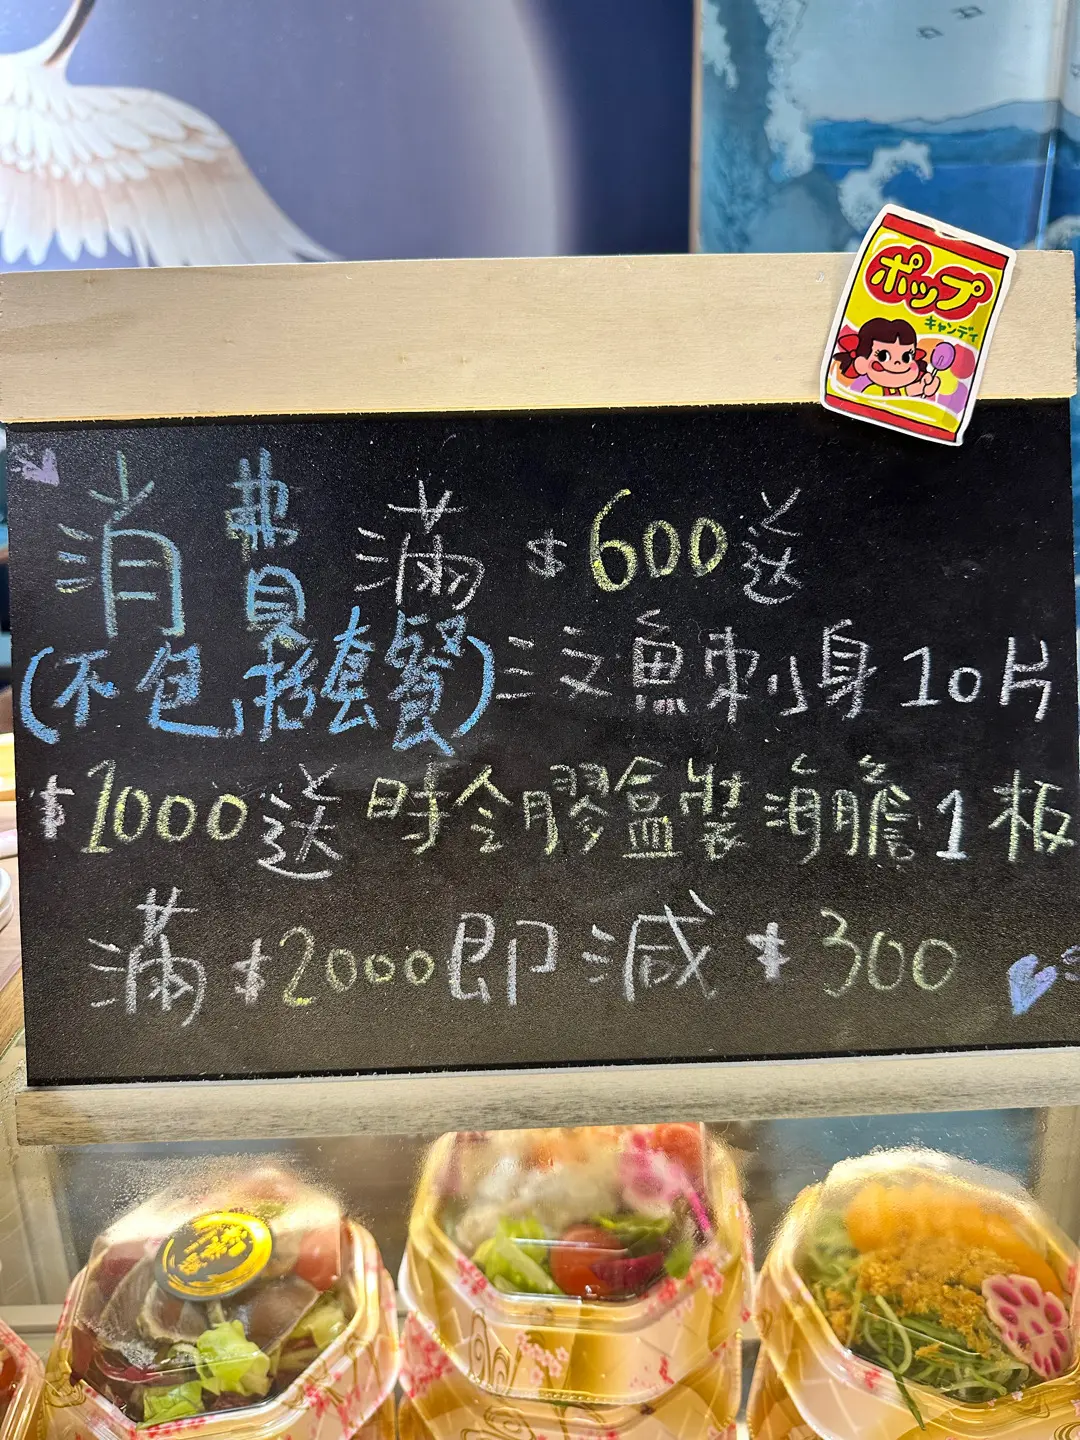 ポップ
キャンディ
消費滿$600送
(不包括套餐)三文魚刺身10片
$1000送時令膠盒裝海膽1板
滿$2000即減$300